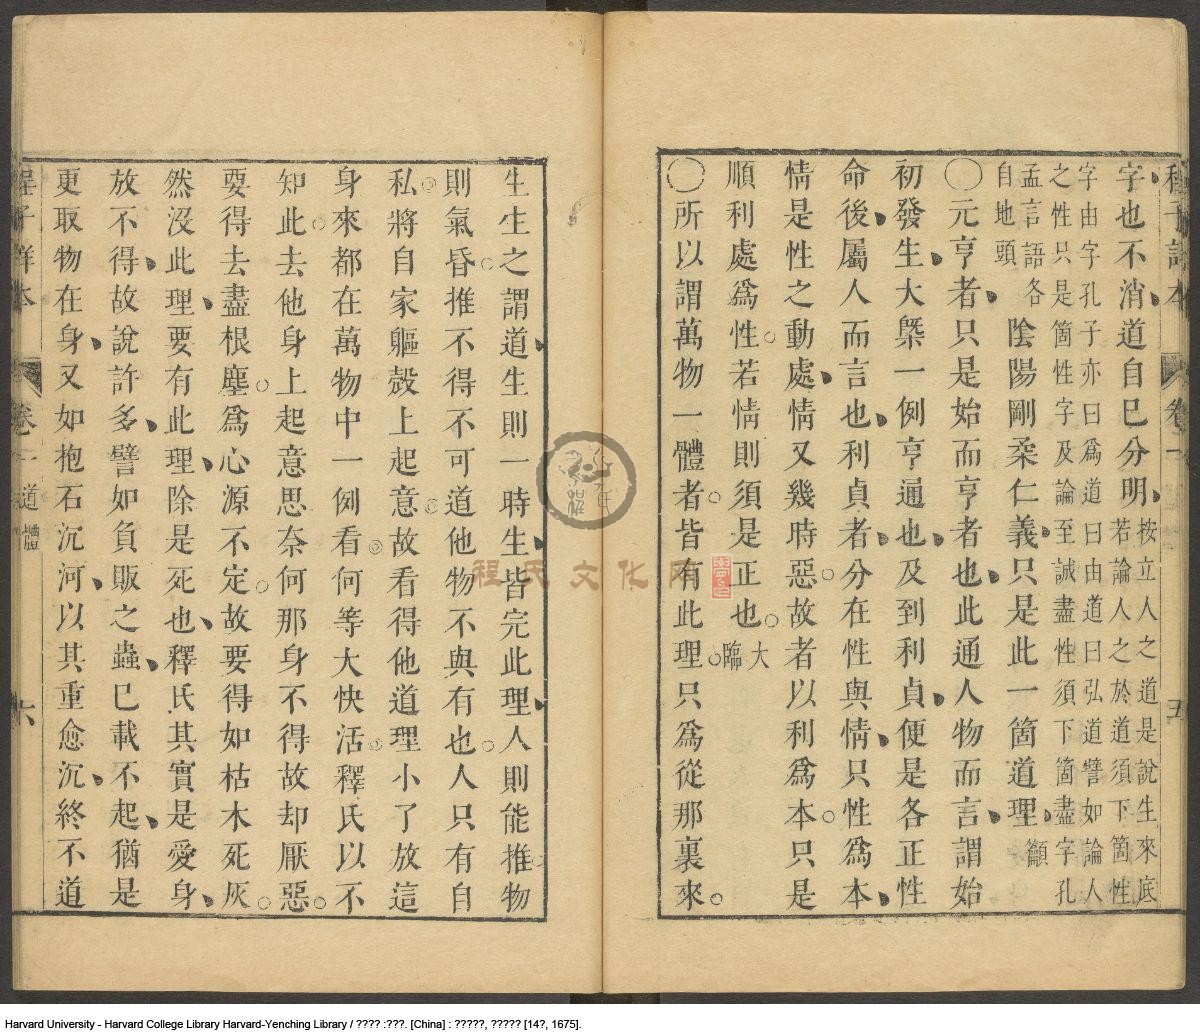 程子詳本 卷一 五
字也不消道自巳分明按立人之道是說生來底
若論人之於道須下箇性
字由字孔子亦曰爲道曰由道曰弘道譬如論人
之性只是箇性字及論至誠盡性須下箇盡字孔
孟言語各
自地頭
陰陽剛柔仁義只是此一箇道理籲
◯元亨者只是始而亨者也此通人物而言謂始
初發生大槩一例亨通也及到利貞便是各正性
命後屬人而言也利貞者分在性與情只性爲本
情是性之動處情又幾時惡故者以利爲本只是
順利處爲性若情則須是正也大臨
◯所以謂萬物一體者皆有此理只爲從那裏來
生生之謂道生則一時生皆完此理人則能推物
則氣昏推不得不可道他物不與有也人只有自
私將自家軀殻上起意故看得他道理小了放這
身來都在萬物中一例看何等大快活釋氏以不
知此去他身上起意思奈何那身不得故却厭惡
要得去盡根塵爲心源不定故要得如枯木死灰
然沒此理要有此理除是死也釋氏其實是愛身
放不得故說許多譬如負販之蟲巳載不起猶是
更取物在身又如抱石沉河以其重愈沉終不道
程子詳本 卷一 道體 六
程氏文化网
Harvard University - Harvard College Library Harvard-Yenching Library / ???? :???. [China] : ?????, ????? [14?, 1675].